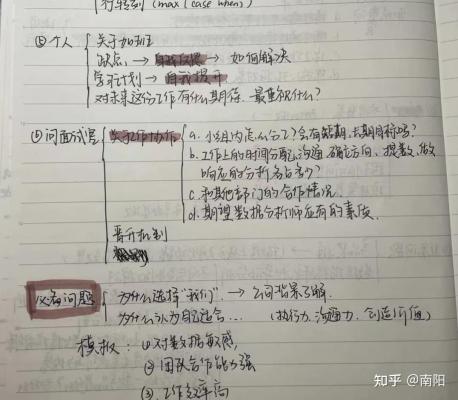 行转列 (max (case when)
⑤个人
关于加班
缺点 → 自我反思 → 如何解决
学习计划 → 自我提升
对未来这份工作有什么期待、最重视什么?
⑥问面试官
关于工作协作
a. 小组内怎么分工?会有短期、长期目标吗?
b. 工作上的时间分配沟通、确定方向、提数、做
响应的分析各占多少?
c. 和其他部门的合作情况
d. 期望数据分析师应有的素质.
晋升机制
必备问题
为什么选择"我们" → 公司背景了解.
为什么认为自己适合… (执行力、沟通力、创造价值)
模板: ① 对数据敏感,
② 团队合作能力强
③ 工作效率高
知乎 @南阳